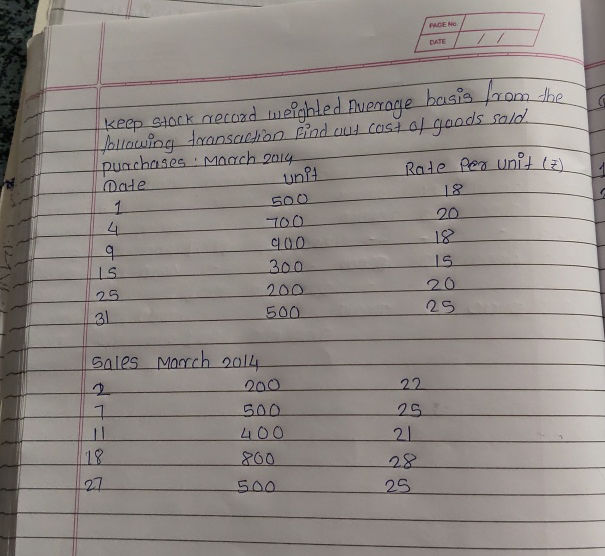 PAGE No.
DATE / /
Keep stock record weighted Average basis from the
following transaction Find out cost of goods sold
purchases : March 2014
Date unit Rate Per unit (₹)
1 500 18
4 700 20
9 900 18
15 300 15
25 200 20
31 500 25
Sales March 2014
2 200 22
7 500 25
11 400 21
18 800 28
27 500 25